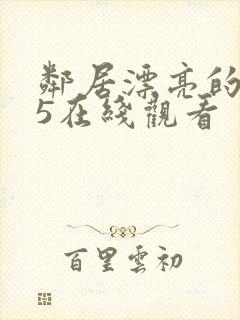 鄰居漂亮的
5在綫觀看
百里雲初